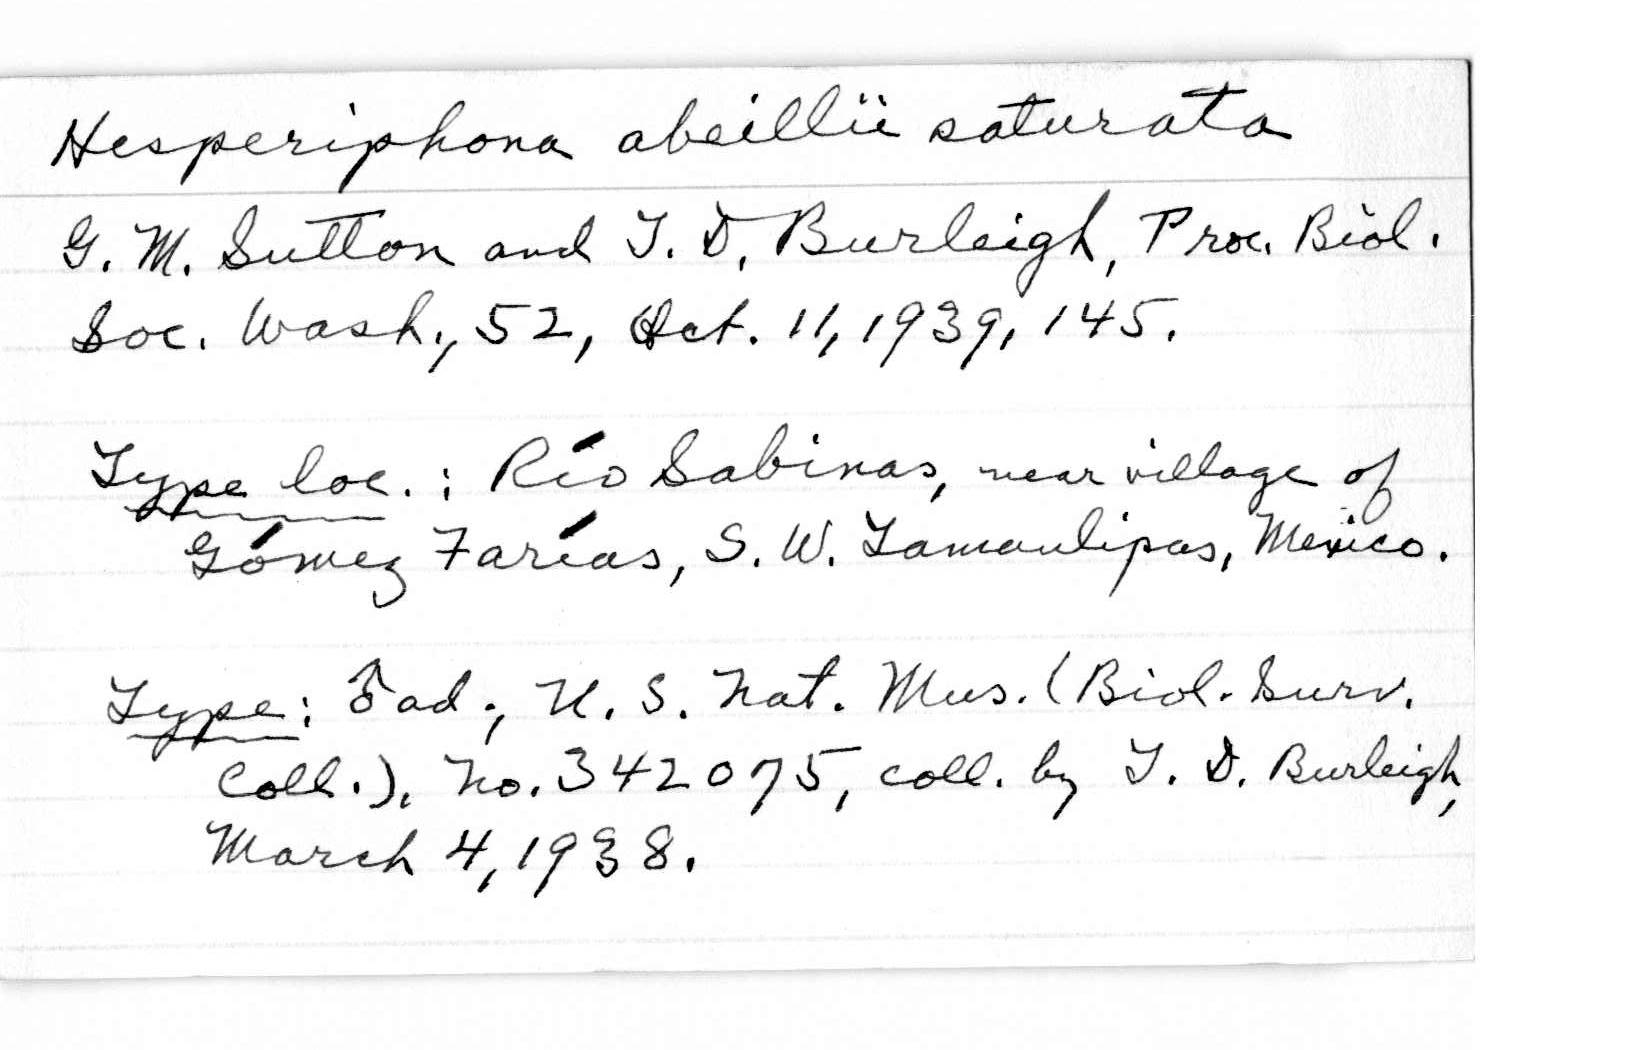 Hesperiphona abeillii saturata
G. M. Sutton and T. D. Burleigh, Proc. Biol.
Soc. Wash., 52, Oct. 11, 1939, 145.
Type loc.: Río Sabinas, near village of
Gómez Farías, S. W. Tamaulipas, Mexico.
Type: ♂ ad., U. S. Nat. Mus. (Biol. Surv.
Coll.), No. 342075, coll. by T. D. Burleigh,
March 4, 1938.